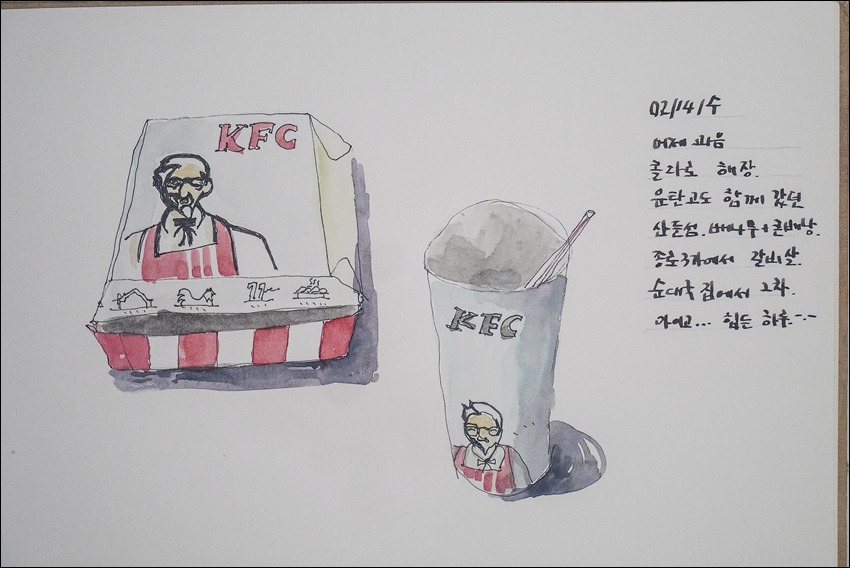 KFC
KFC
02/14/수
어제 과음
콜라로 해장.
운탄고도 함께 갔던
산들섬. 버나루+콘배낭.
종로3가에서 갈비살.
순대국 집에서 2차.
아이고... 힘든 하루-.-